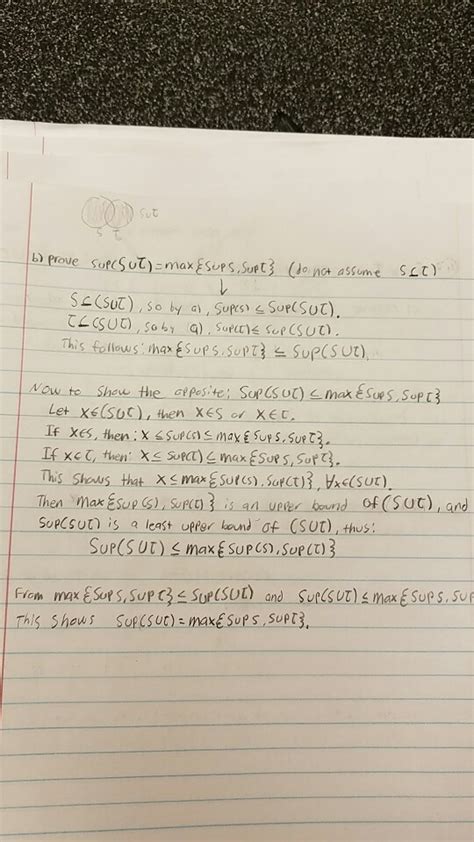 S∪T
S T
b) prove sup(S∪T)=max{sup S, sup T} (do not assume S⊆T)
↓
S⊆(S∪T), so by a), sup(s) ≤ sup(S∪T).
T⊆(S∪T), so by a), sup(T) ≤ sup(S∪T).
This follows: max{sup S, sup T} ≤ sup(S∪T).
Now to show the opposite: sup(S∪T) ≤ max{sup S, sup T}
Let x∈(S∪T), then x∈S or x∈T.
If x∈S, then: x ≤ sup(s) ≤ max{sup S, sup T}.
If x∈T, then: x ≤ sup(T) ≤ max{sup S, sup T}.
This shows that x ≤ max{sup(s), sup(T)}, ∀x∈(S∪T).
Then max{sup(s), sup(T)} is an upper bound of (S∪T), and
sup(S∪T) is a least upper bound of (S∪T), thus:
sup(S∪T) ≤ max{sup(s), sup(T)}
From max{sup S, sup T} ≤ sup(S∪T) and sup(S∪T) ≤ max{sup S, sup
This shows sup(S∪T) = max{sup S, sup T}.